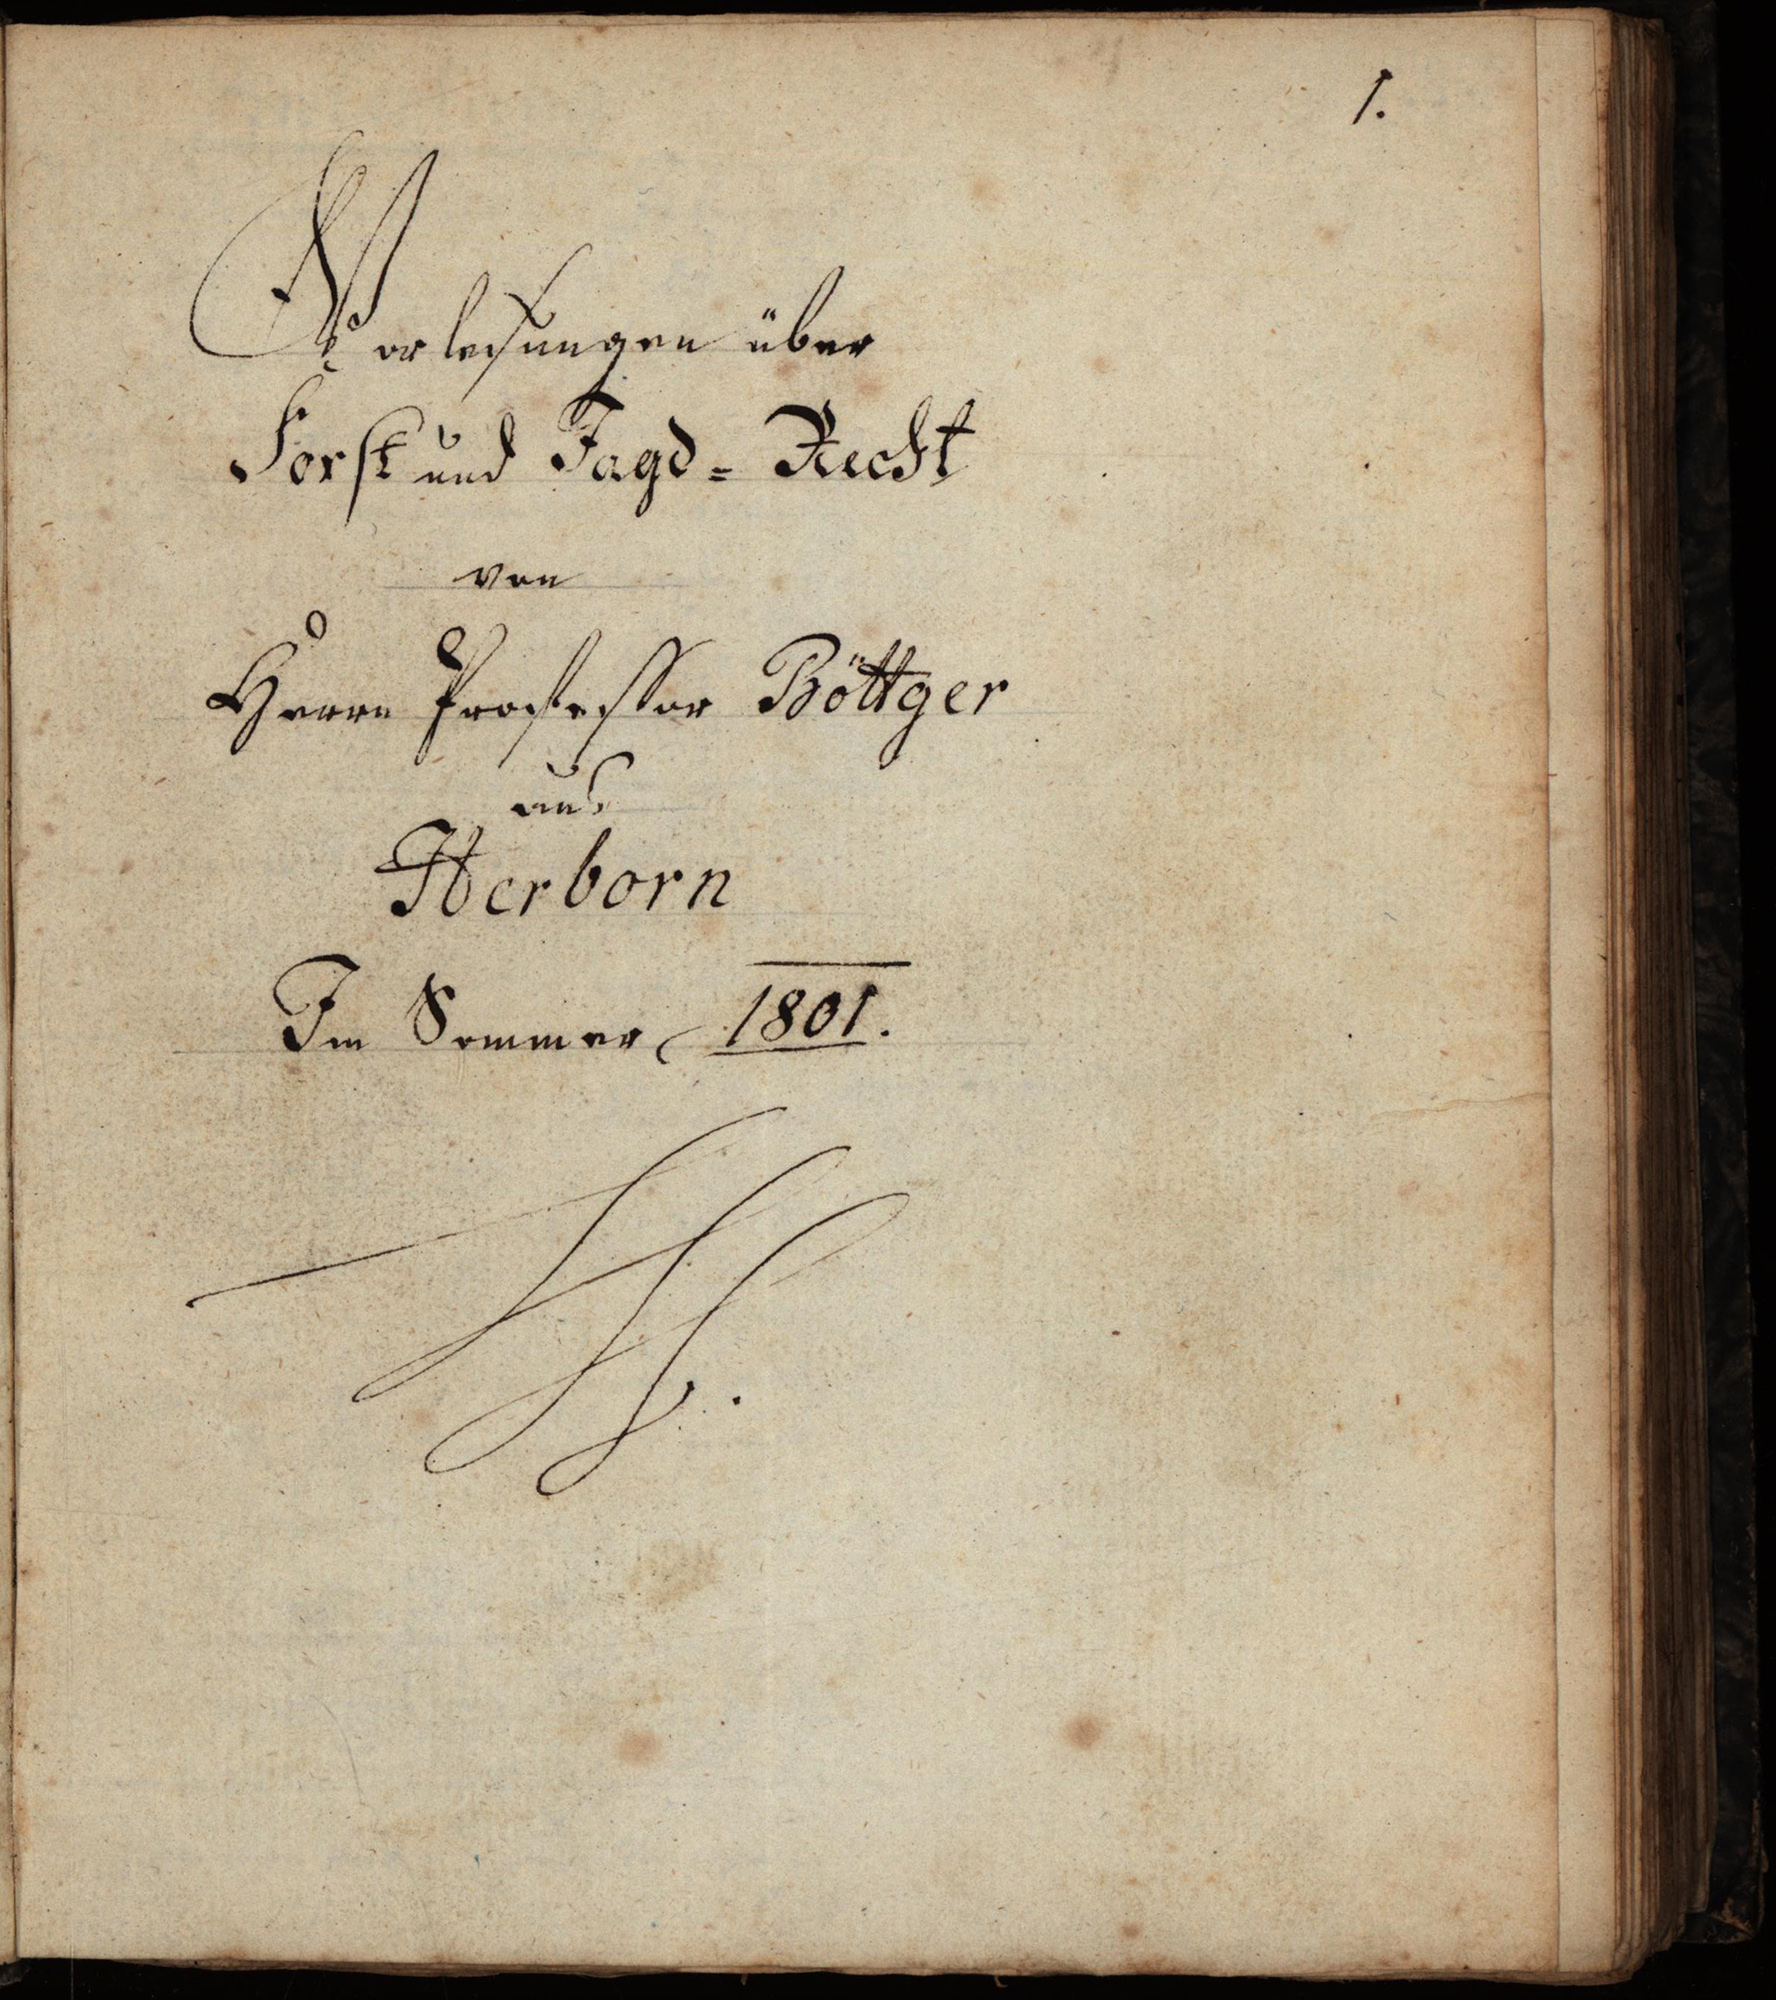 1.
Vorlesungen über
Forst und Jagd = Recht
von
Herrn Professor Böttger
aus
Herborn
Im Sommer 1801.